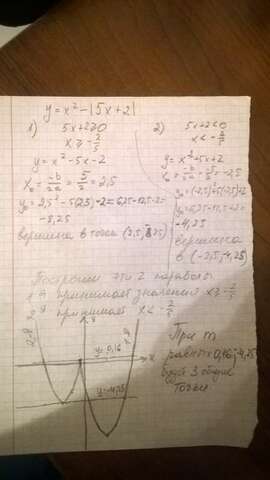 y = x² - |5x + 2|
1) 5x+2≥0
x ≥ -2/5
y = x² - 5x - 2
x₀ = -b/2a = 5/2 = 2,5
y₀ = 2,5² - 5(2,5) - 2 = 6,25 - 12,5 - 2 =
-8,25
вершина в точке (2,5; 8,25)
2) 5x+2<0
x < -2/5
y = x² + 5x + 2
x₀ = -b/2a = -5/2 = -2,5
y₀ = (-2,5)² + 5(-2,5) + 2
y₀ = 6,25 - 12,5 + 2 =
-4,25
вершина
в (-2,5; -4,25)
Построим эти 2 параболы
1 принимает значения x ≥ -2/5
2 принимает x < -2/5
y = 0,16
x
y = -4,25
При m
равных 0,16; -4,25
будет 3 общие
точки